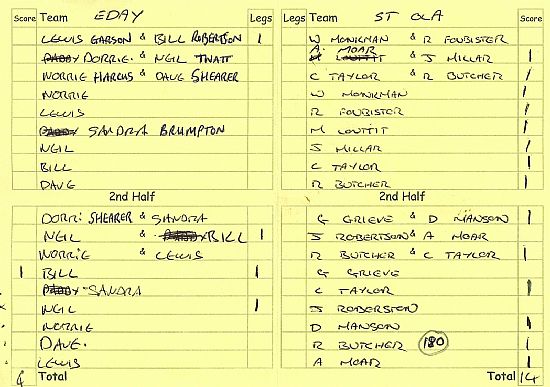 Score Team EDAY Legs Legs Team ST OLA Score
LEWIS GARSON & BILL ROBERTSON 1 W MONKMAN & R FOUBISTER
A. MOAR
DORRIE & NEIL THATT & J MILLAR 1
NORRIE HARCUS & DAVE SHEARER C TAYLOR & R BUTCHER 1
NORRIE W MONKMAN 1
LEWIS R FOUBISTER 1
SANDRA BRUMPTON M LOUTTIT 1
NEIL J MILLAR 1
BILL C TAYLOR 1
DAVE R BUTCHER 1
2nd Half 2nd Half
DORRI SHEARER & SANDRA G GRIEVE & D MANSON 1
NEIL & BILL 1 J ROBERTSON & A MOAR
NORRIE & LEWIS R BUTCHER & C TAYLOR 1
1 BILL 1 G GRIEVE
SANDRA C TAYLOR 1
NEIL 1 J ROBERSTON
NORRIE D MANSON 1
DAVE. R BUTCHER 180 1
LEWIS A MOAR 1
Total Total 14